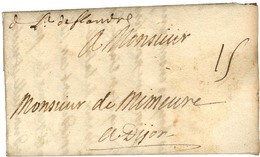 de L'. de flandre
A Monsieur
15
Monsieur de Mimeure
a Dijon